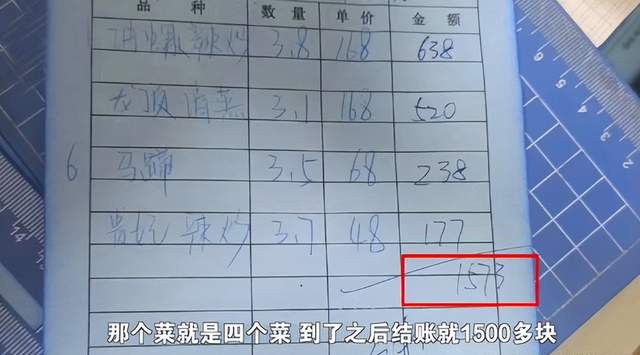 品种 数量 单价 金额
辣炒 3.8 168 638
龙 清蒸 3.1 168 520
6 马蹄 3.5 68 238
贵妃 辣炒 3.7 48 177
1573
那个菜就是四个菜 到了之后结账就1500多块